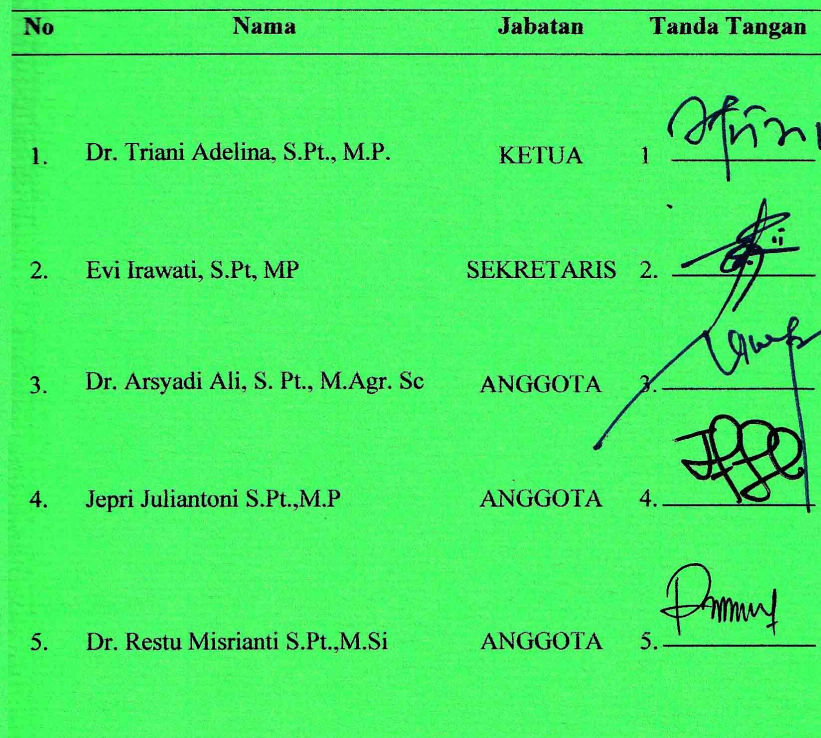 No Nama Jabatan Tanda Tangan
1. Dr. Triani Adelina, S.Pt., M.P. KETUA 1
2. Evi Irawati, S.Pt, MP SEKRETARIS 2.
3. Dr. Arsyadi Ali, S. Pt., M.Agr. Sc ANGGOTA 3.
4. Jepri Juliantoni S.Pt.,M.P ANGGOTA 4.
5. Dr. Restu Misrianti S.Pt.,M.Si ANGGOTA 5.